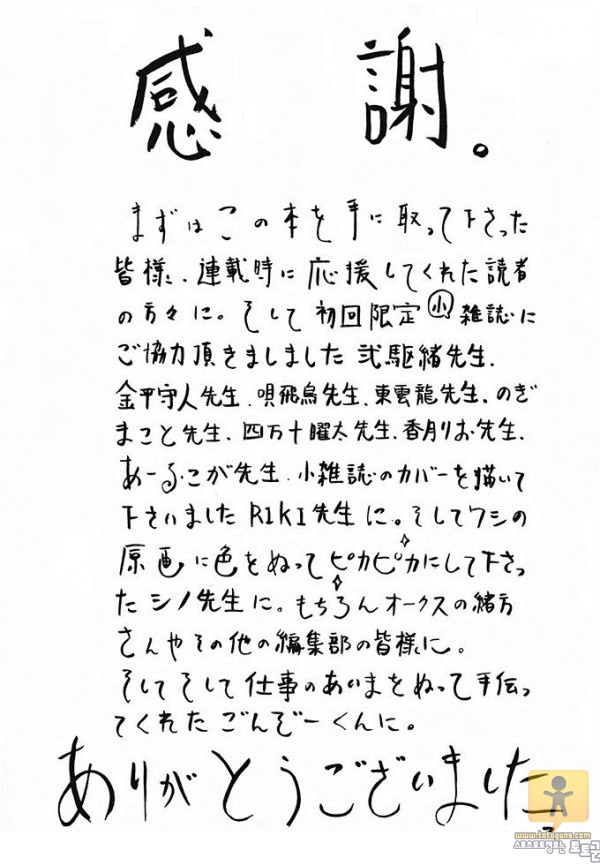 感謝。
まずはこの本を手に取って下さった
皆様、連載時に応援してくれた読者
の方々に。そして初回限定小雑誌に
ご協力頂きましました弐駆緒先生、
金平守人先生、唄飛鳥先生、東雲龍先生、のぎ
まこと先生、四万十曜太先生、香月りお先生、
あーる・こが先生、小雑誌のカバーを描いて
下さいましたRIKI先生に。そしてワシの
原画に色をぬってピカピカにして下さっ
たシノ先生に。もちろんオークスの緒方
さんやその他の編集部の皆様に。
そしてそして仕事のあいまをぬって手伝っ
てくれたごんぞーくんに。
ありがとうございました。
www.totoguns.com